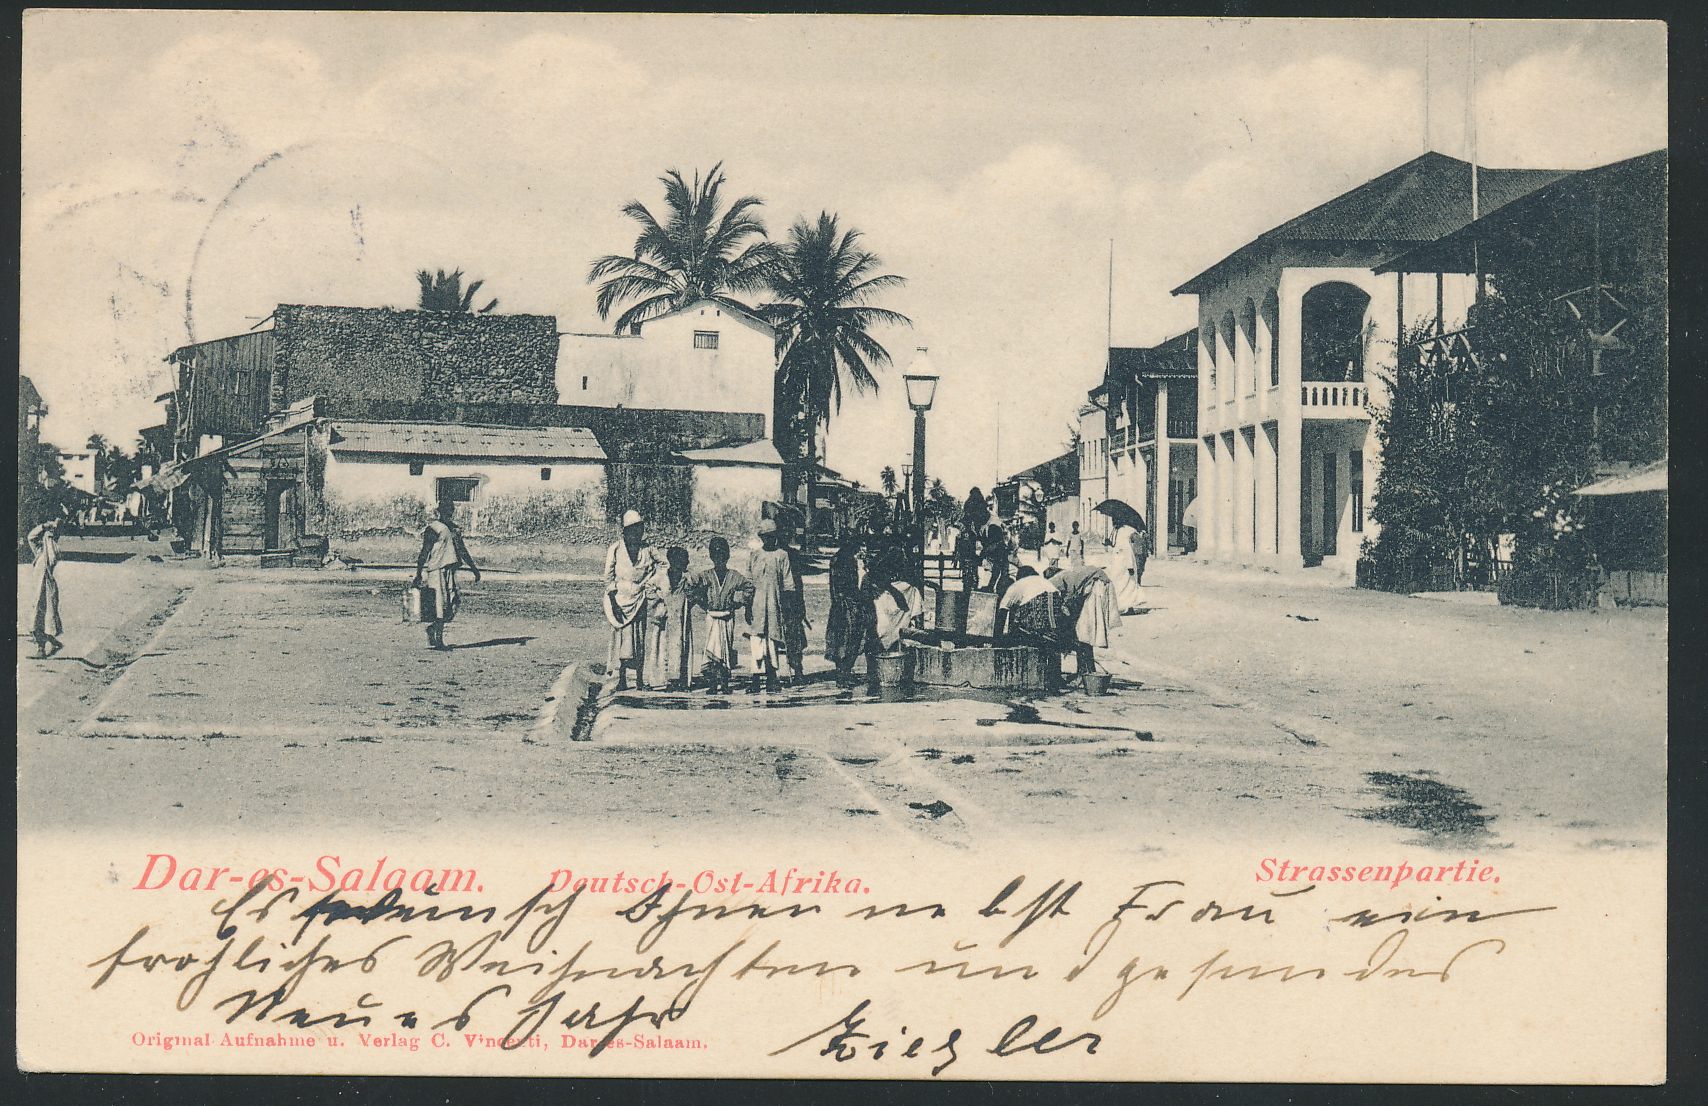 Dar-es-Salaam. Deutsch-Ost-Afrika. Strassenpartie.
Es wünsch Ihnen nebst Frau ein
frohliches Weihnachten und gesundes
Neues Jahr
Ziegler
Original Aufnahme u. Verlag C. Vincenti, Dar-es-Salaam.